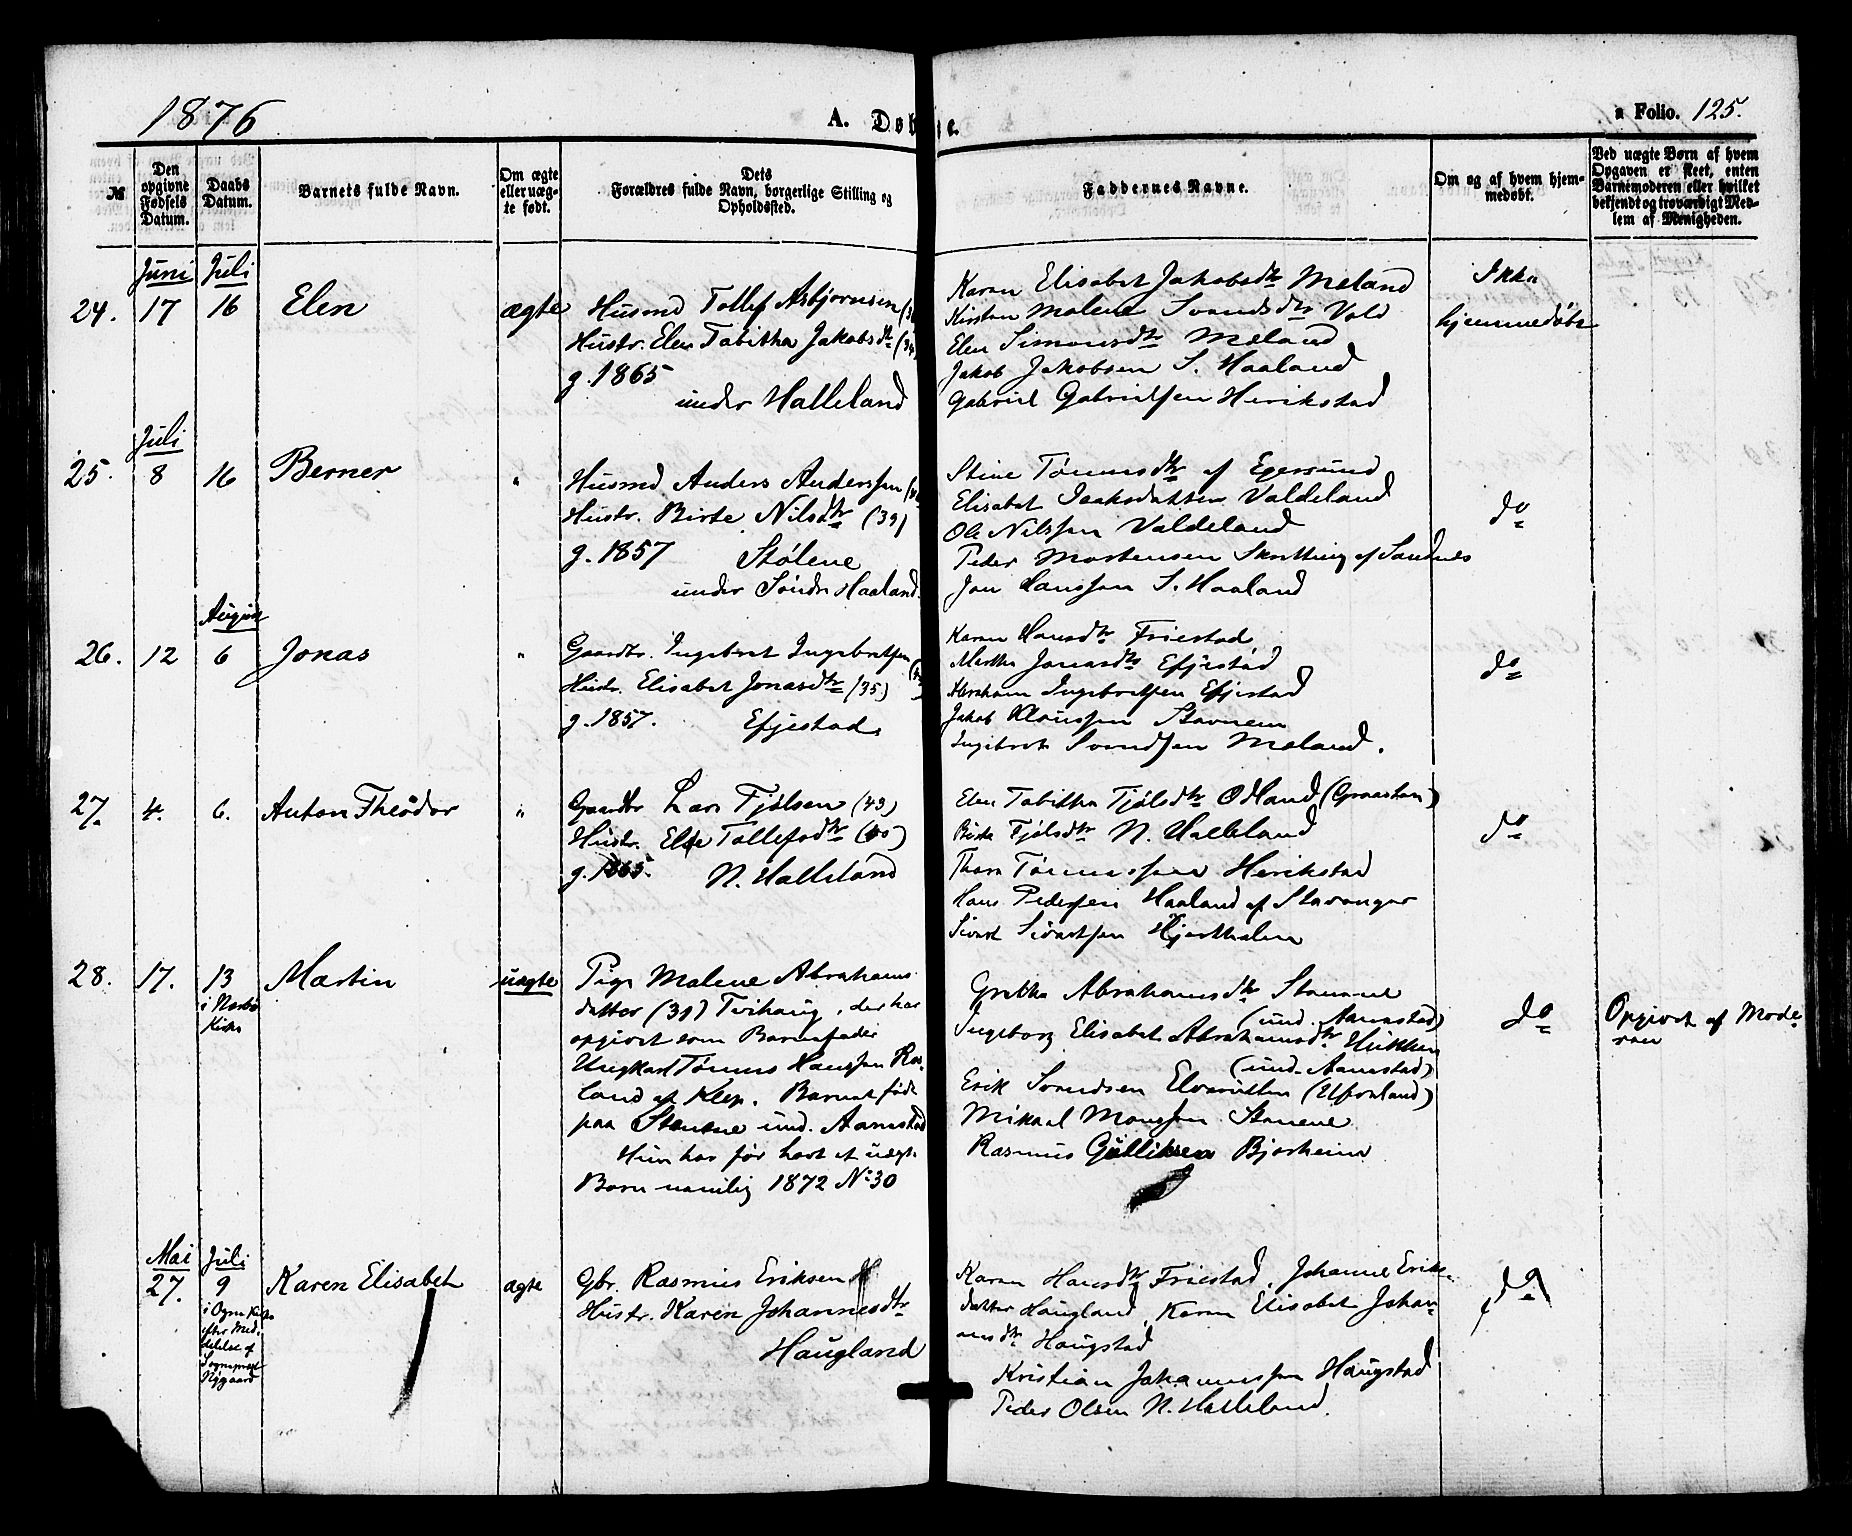 1876
A. Døbte.
a Folio. 125.
№
Den opgivne Fødsels Datum.
Daabs Datum.
Barnets fulde Navn.
Om ægte eller uæg-te født.
Dets Forældres fulde Navn, borgerlige Stilling og Opholdssted.
Faddernes Navne.
Om og af hvem hjem-medøbt.
Ved uægte Børn af hvem Opgaven er skeet, enten Barnemoderen eller hvilket bekjendt og troværdigt Med-lem af Menigheden.
Juni Juli
24. 17 16 Elen ægte
Husmd Tollef Asbjørnsen
Hustr. Elen Tabitha Jakobsdtr (34)
g. 1865
under Halleland
Karen Elisabet Jakobsdtr Meland
Kirsten Malene Svendsdtr Vold
Elen Simonsdtr Meland
Jakob Jakobsen S. Haaland
Gabriel Gabrielsen Herikstad
Ikke
hjemmedøbt
Juli
25. 8 16 Berner "
Husmd Anders Anderssen
Hustr. Birte Nilsdtr (39)
g. 1857 Stølene
under Søndre Haaland
Stine Tønnesdtr af Egersund
Elisabet Isaksdatter Valdeland
Ole Nilssen Valdeland
Peder Mortensen Skretting af Sandnes
Jon Hanssen S. Haaland
do
August
26. 12 6 Jonas "
Gaardbr. Ingebret Ingebretsen
Hustr. Elisabet Jonasdtr (35)
g. 1857. Efjestad
Karen Hansdtr Friestad
Martha Jonasdtr Efjestad
Abraham Ingebretsen Efjestad
Jakob Klaussen Stavnem
Ingebret Svendsen Meland.
do
27. 4. 6. Anton Theodor "
Gaardbr Lars Fjølsen (43)
Hustr. Else Tollefsdtr (40)
g. 1865. N. Halleland
Elen Tabitha Fjølsdtr Odland (Graasten)
Birte Fjølsdtr N. Halleland
Thore Tønnessen Herikstad
Hans Pedersen Haaland af Stavanger
Sivert Sivertsen Hjorthelen
do
28. 17. 13 Martin uægte
i Nærbø
Kirke
Pige Malene Abrahams
datter (31) Tvihaug, der har
opgivet som Barnefader
Ungkarl Tønnes Hanssen Ro-
land af Klep. Barnet født
paa Stenene und. Aanestad
Hun har før havt et uægte
Barn nemlig 1872 No 30
Grethe Abrahamsdtr Stenene
(und. Aanestad)
Ingeborg Elisabet Abrahamsdtr
(und. Aanestad)
Erik Svendsen Elvevollen
Mikael Monssen Stenene
Rasmus Gulliksen Bjorheim
do
Opgivet af Mode-
ren
Mai Juli
27. 9 Karen Elisabet ægte
i Ogne Kirke
efter Med-
delelse af
Sogneprest
Nygaard
Gbr. Rasmus Eriksen
Hustr. Karen Johannesdtr
Haugland
Karen Hansdtr Friestad, Johanne Eriks-
datter Haugland, Karen Elisabet Johan-
nesdtr Haugstad
Kristian Johannessen Haugstad
Peder Olsen N. Halleland.
do